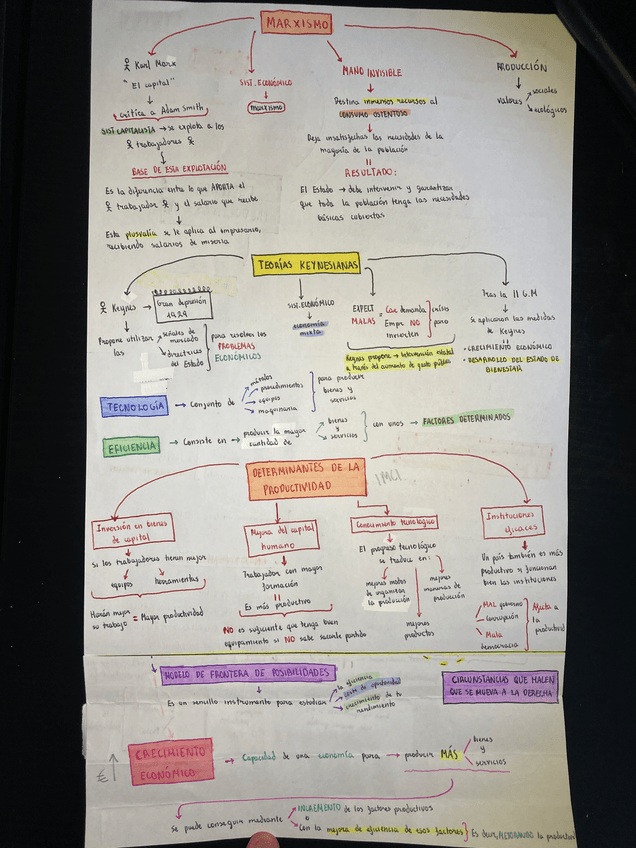 MARXISMO
Karl Marx
"El capital"
crítica a Adam Smith
SIST. CAPITALISTA → se explota a los
trabajadores
BASE DE ESTA EXPLOTACIÓN
Es la diferencia entre lo que APORTA el
trabajador y el salario que recibe
Esta plusvalía se le aplica al empresario,
recibiendo salarios de miseria
SIST. ECONÓMICO
marxismo
MANO INVISIBLE
Destina inmensos recursos al
CONSUMO OSTENTOSO
Deja insatisfechas las necesidades de la
mayoría de la población
RESULTADO:
El Estado → debe intervenir y garantizar
que toda la población tenga las necesidades
básicas cubiertas
PRODUCCIÓN
valores
sociales
ecológicos
TEORÍAS KEYNESIANAS
Keynes → Gran depresión
1929
Propone utilizar
las
señales de
mercado
directrices
del Estado
para resolver los
PROBLEMAS
ECONÓMICOS
SIST. ECONÓMICO
economía
mixta
EXPECT
MALAS
= Cae demanda
Empr. NO
invierten
crisis
paro
Keynes propone → Intervención estatal
a través del aumento de gasto público
Tras la II G.M
Se aplicaron las medidas
de Keynes
· CRECIMIENTO ECONÓMICO
· DESARROLLO DEL ESTADO DE
BIENESTAR
TECNOLOGÍA → Conjunto de
métodos
procedimientos
equipos
maquinaria
para producir
bienes y
servicios
EFICIENCIA → Consiste en → producir la mayor
cantidad de
bienes
y
servicios
con unos → FACTORES DETERMINADOS
DETERMINANTES DE LA
PRODUCTIVIDAD
Inversión en bienes
de capital
Si los trabajadores tienen mejor
equipos
herramientas
Harán mejor
su trabajo = Mayor productividad
Mejora del capital
humano
Trabajador con mayor
formación
Es más productivo
NO es suficiente que tenga buen
equipamiento si NO sabe sacarle partido
Conocimiento tecnológico
El progreso tecnológico
se traduce en:
mejores modos
de organizar
la producción
mejores
productos
mejores
maneras de
producción
Instituciones
eficaces
Un país también es más
productivo si funcionan
bien las instituciones
MAL gobierno
corrupción
Mala
democracia
Afecta a
la
MODELO DE FRONTERA DE POSIBILIDADES
Es un sencillo instrumento para estudiar
la eficiencia
coste de oportunidad
crecimiento de to
rendimiento
CIRCUNSTANCIAS QUE HACEN
QUE SE MUEVA A LA DERECHA
€ ↑
CRECIMIENTO
ECONÓMICO
→ Capacidad de una economía para → producir MÁS
bienes
y
servicios
Se puede conseguir mediante
INCREMENTO de los factores productivos
o
Con la mejora de eficiencia de esos factores
Es decir, MEJORANDO la